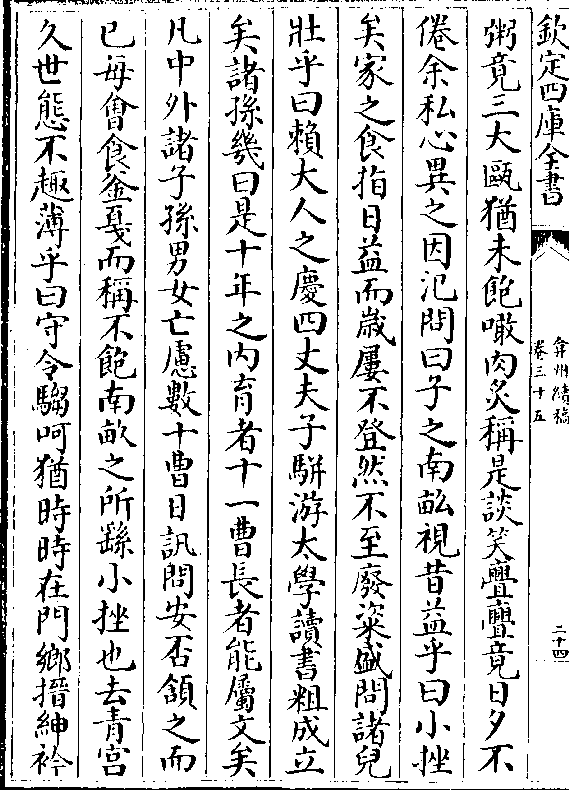 欽定四庫全書
弇州續稿
卷三十五
二十四
粥竟三大甌猶未飽噉肉炙稱是談笑亹亹竟日夕不
倦余私心異之因汜問曰子之南畝視昔益乎曰小挫
矣家之食指日益而歲屢不登然不至廢粢盛問諸兒
壯乎曰賴大人之慶四丈夫子駢游太學讀書粗成立
矣諸孫幾曰是十年之内育者十一曹長者能屬文矣
凡中外諸子孫男女亡慮數十曹日訊問安否頷之而
已毋會食釡戛而稱不飽南畝之所繇小挫也去青宫
久世態不趣薄乎曰守令騶呵猶時時在門鄉搢紳衿